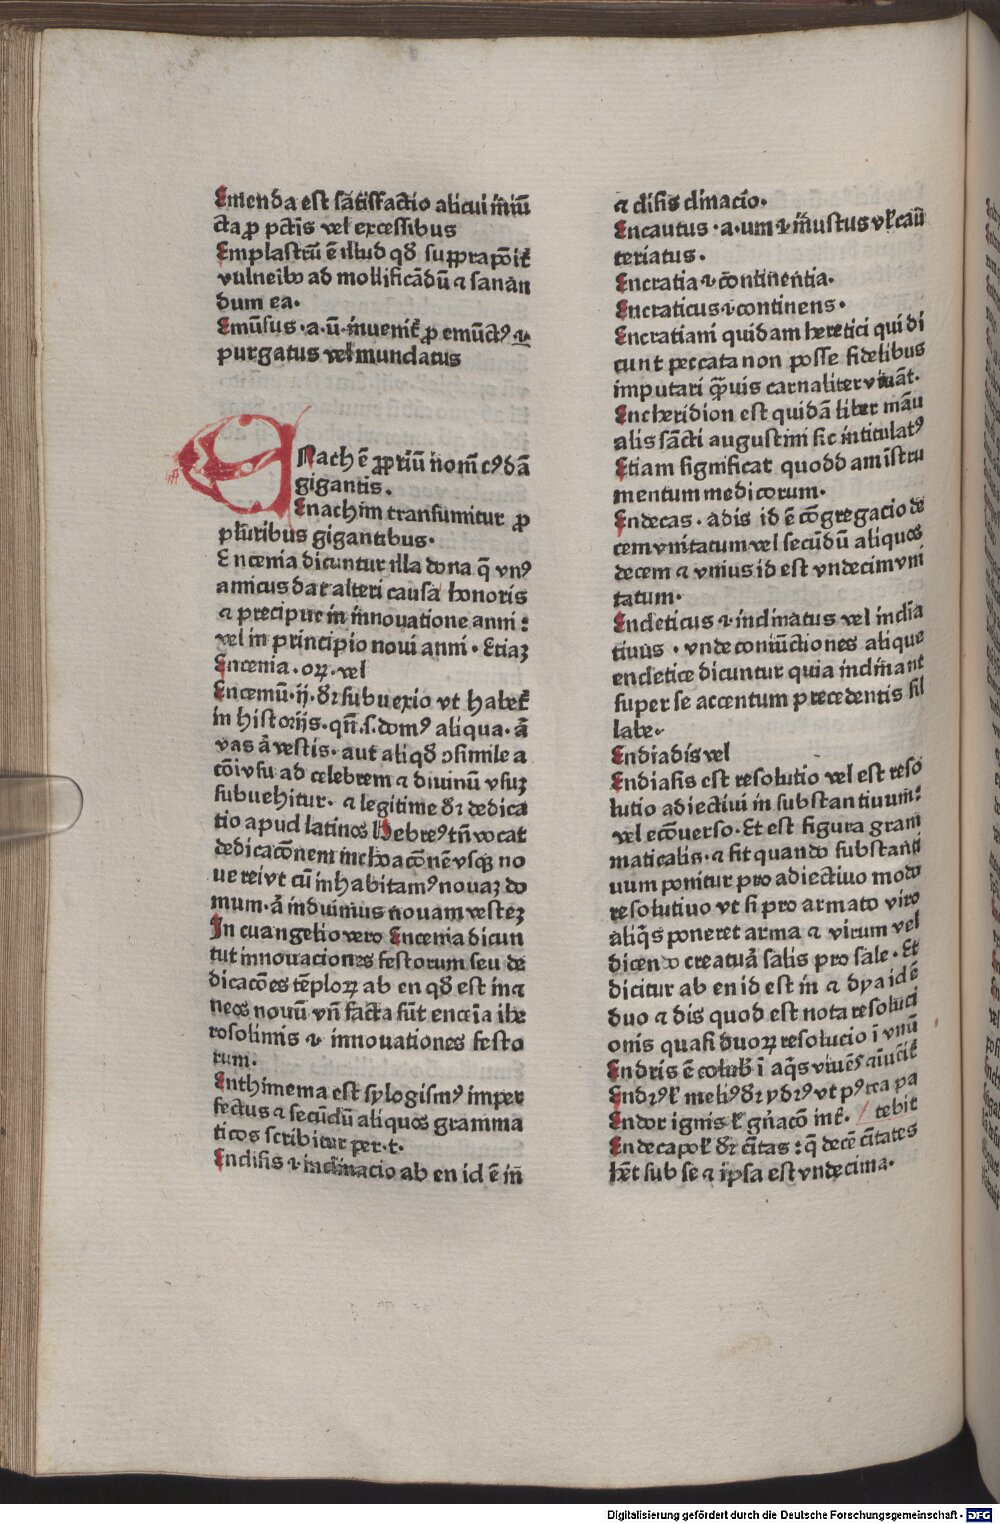 Emenda est sātisfactio alicui iniū
cta ꝓ pctīs vel excessibus
Emplastrū ē illud qđ suprapōit᷑
vulneribꝰ ad mollificādū ⁊ sanan
dum ea.
Emūsus .a.ū. inuenit᷑ ꝓ emūctꝰ .i.
purgatus vel mundatus
ENach ē ꝓpriū nom̄ cꝰdā
gigantis.
Enachim transumitur ꝓ
pluribus gigantibus.
Encenia dicuntur illa dona q̄ vnꝰ
amicus dat alteri causa honoris
⁊ precipue in innouatione anni :
vel in principio noui anni. Etiaꝫ
Encenia .oꝝ. vel
Enceniū .ij. dr̄ subuexio vt habet᷑
in historijs. qn̄ .s. domꝰ aliqua. aut̄
vas aut̄ vestis. aut aliqđ ꝯsimile a
cōi vsu ad celebrem ⁊ diuinū vsuꝫ
subuehitur. ⁊ legitime dr̄ dedica
tio apud latinos Hebreꝰ tn̄ vocat
dedicacōnem inchoacōnē vsqꝫ no
ue rei vt cū inhabitamꝰ nouaꝫ do
mum. aut̄ induimus nouam vesteꝫ
In euangelio vero Encenia dicun
tur innouaciones festorum seu de
dicacōes tēploꝝ ab en qđ est in ⁊
neos nouū vn̄ facta sūt encēia ihe
rosolimis .i. innouationes festo
rum.
Enthimema est sylogismꝰ imper
fectus ⁊ secūdū aliquos gramma
ticos scribitur per .t.
Enclisis .i. inclinacio ab en id ē in
⁊ clisis clinacio.
Encautus .a.um .i. inustus vl᷑ cau
teriatus.
Encratia .i. continentia.
Encraticus .i. continens.
Encratiani quidam heretici qui di
cunt peccata non posse fidelibus
imputari q̄uis carnaliter viuāt.
Encheridion est quidā liber manu
alis sācti augustini sic intitulatꝰ
Etiam significat quodd am īstru
mentum medicorum.
Endecas .adis id ē cōgregacio de
cem vnitatum vel secūdū aliquos
decem ⁊ vnius id est vndecim vni
tatum.
Encleticus .i. inclinatus vel inclīa
tiuus . vnde coniūctiones alique
encletice dicuntur quia inclinant
super se accentum precedentis sil
labe.
Endiadis vel
Endiasis est resolutio vel est reso
lutio adiectiui in substantiuum:
vel ecōuerso. Et est figura gram
maticalis. ⁊ fit quando substanti
uum ponitur pro adiectiuo modo
resolutiuo vt si pro armato viro
aliq̄s poneret arma ⁊ virum vel
dicendo creatura salis pro sale. Et
dicitur ab en id est in ⁊ dya id ē
duo ⁊ dis quod est nota resoluci
onis quasi duoꝝ resolucio ī vnū
Endris ē colub᷑ ī aq̄s viuēs
Endor ignis
Endecapol᷑ dr̄ cītas : q̄ decē cītates
hēt sub se ⁊ ip̄sa est vndecima.
Digitalisierung gefördert durch die Deutsche Forschungsgemeinschaft - DFG